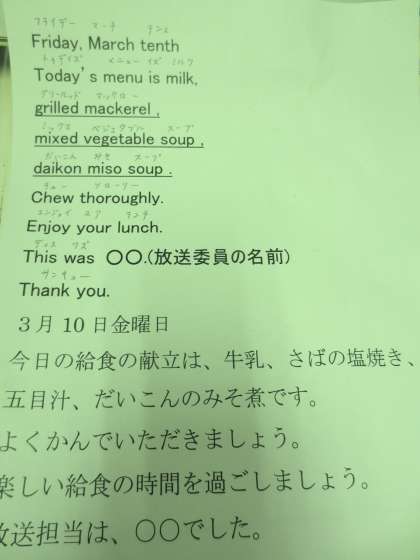 フライデー マーチ テンス
Friday, March tenth
トゥデイズ メニュー イズ ミルク
Today's menu is milk,
マックロー
grilled mackerel ,
ミックス ベジェタブル スープ
mixed vegetable soup ,
だいこん みそ スープ
daikon miso soup .
チュー ソローリー
Chew thoroughly.
エンジョイ ユア ランチ
Enjoy your lunch.
ディス ワズ
This was 〇〇.(放送委員の名前)
サンキュー
Thank you.
3月10日金曜日
今日の給食の献立は、牛乳、さばの塩焼き、
五目汁、だいこんのみそ煮です。
よくかんでいただきましょう。
楽しい給食の時間を過ごしましょう。
放送担当は、〇〇でした。